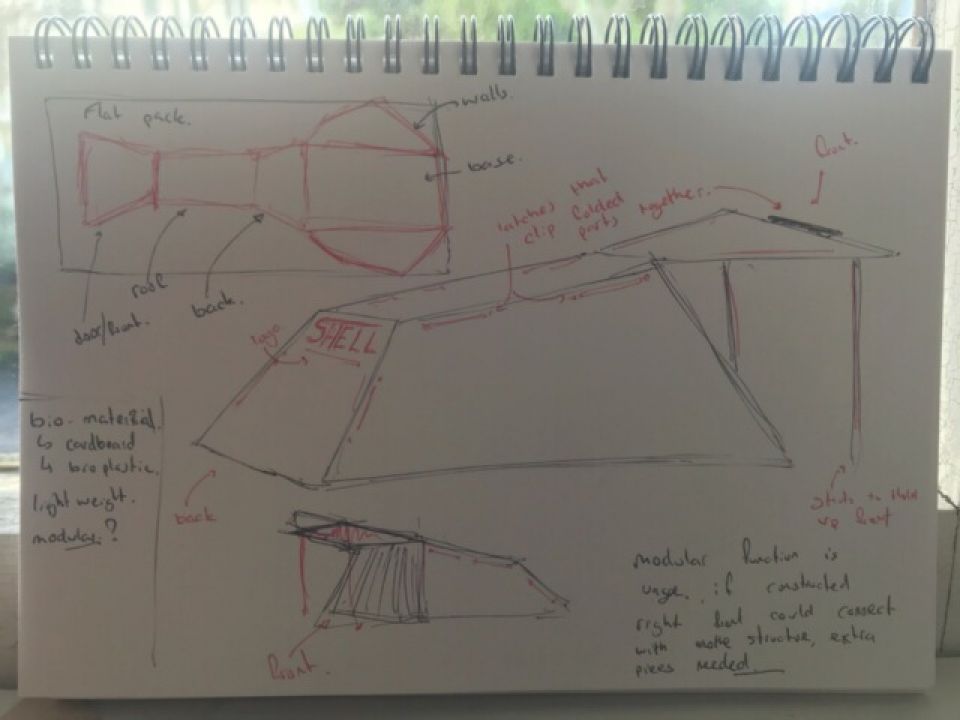 Flat pack.
walls.
base.
roof
back.
door/front.
front.
latches that
clip folded
parts together.
logo
SHELL
back
bio-material.
↳ cardboard
↳ bioplastic.
light weight.
modular?
struts to hold
up front
front.
modular function is
vague. if constructed
right front could connect
with more structure, extra
pieces needed